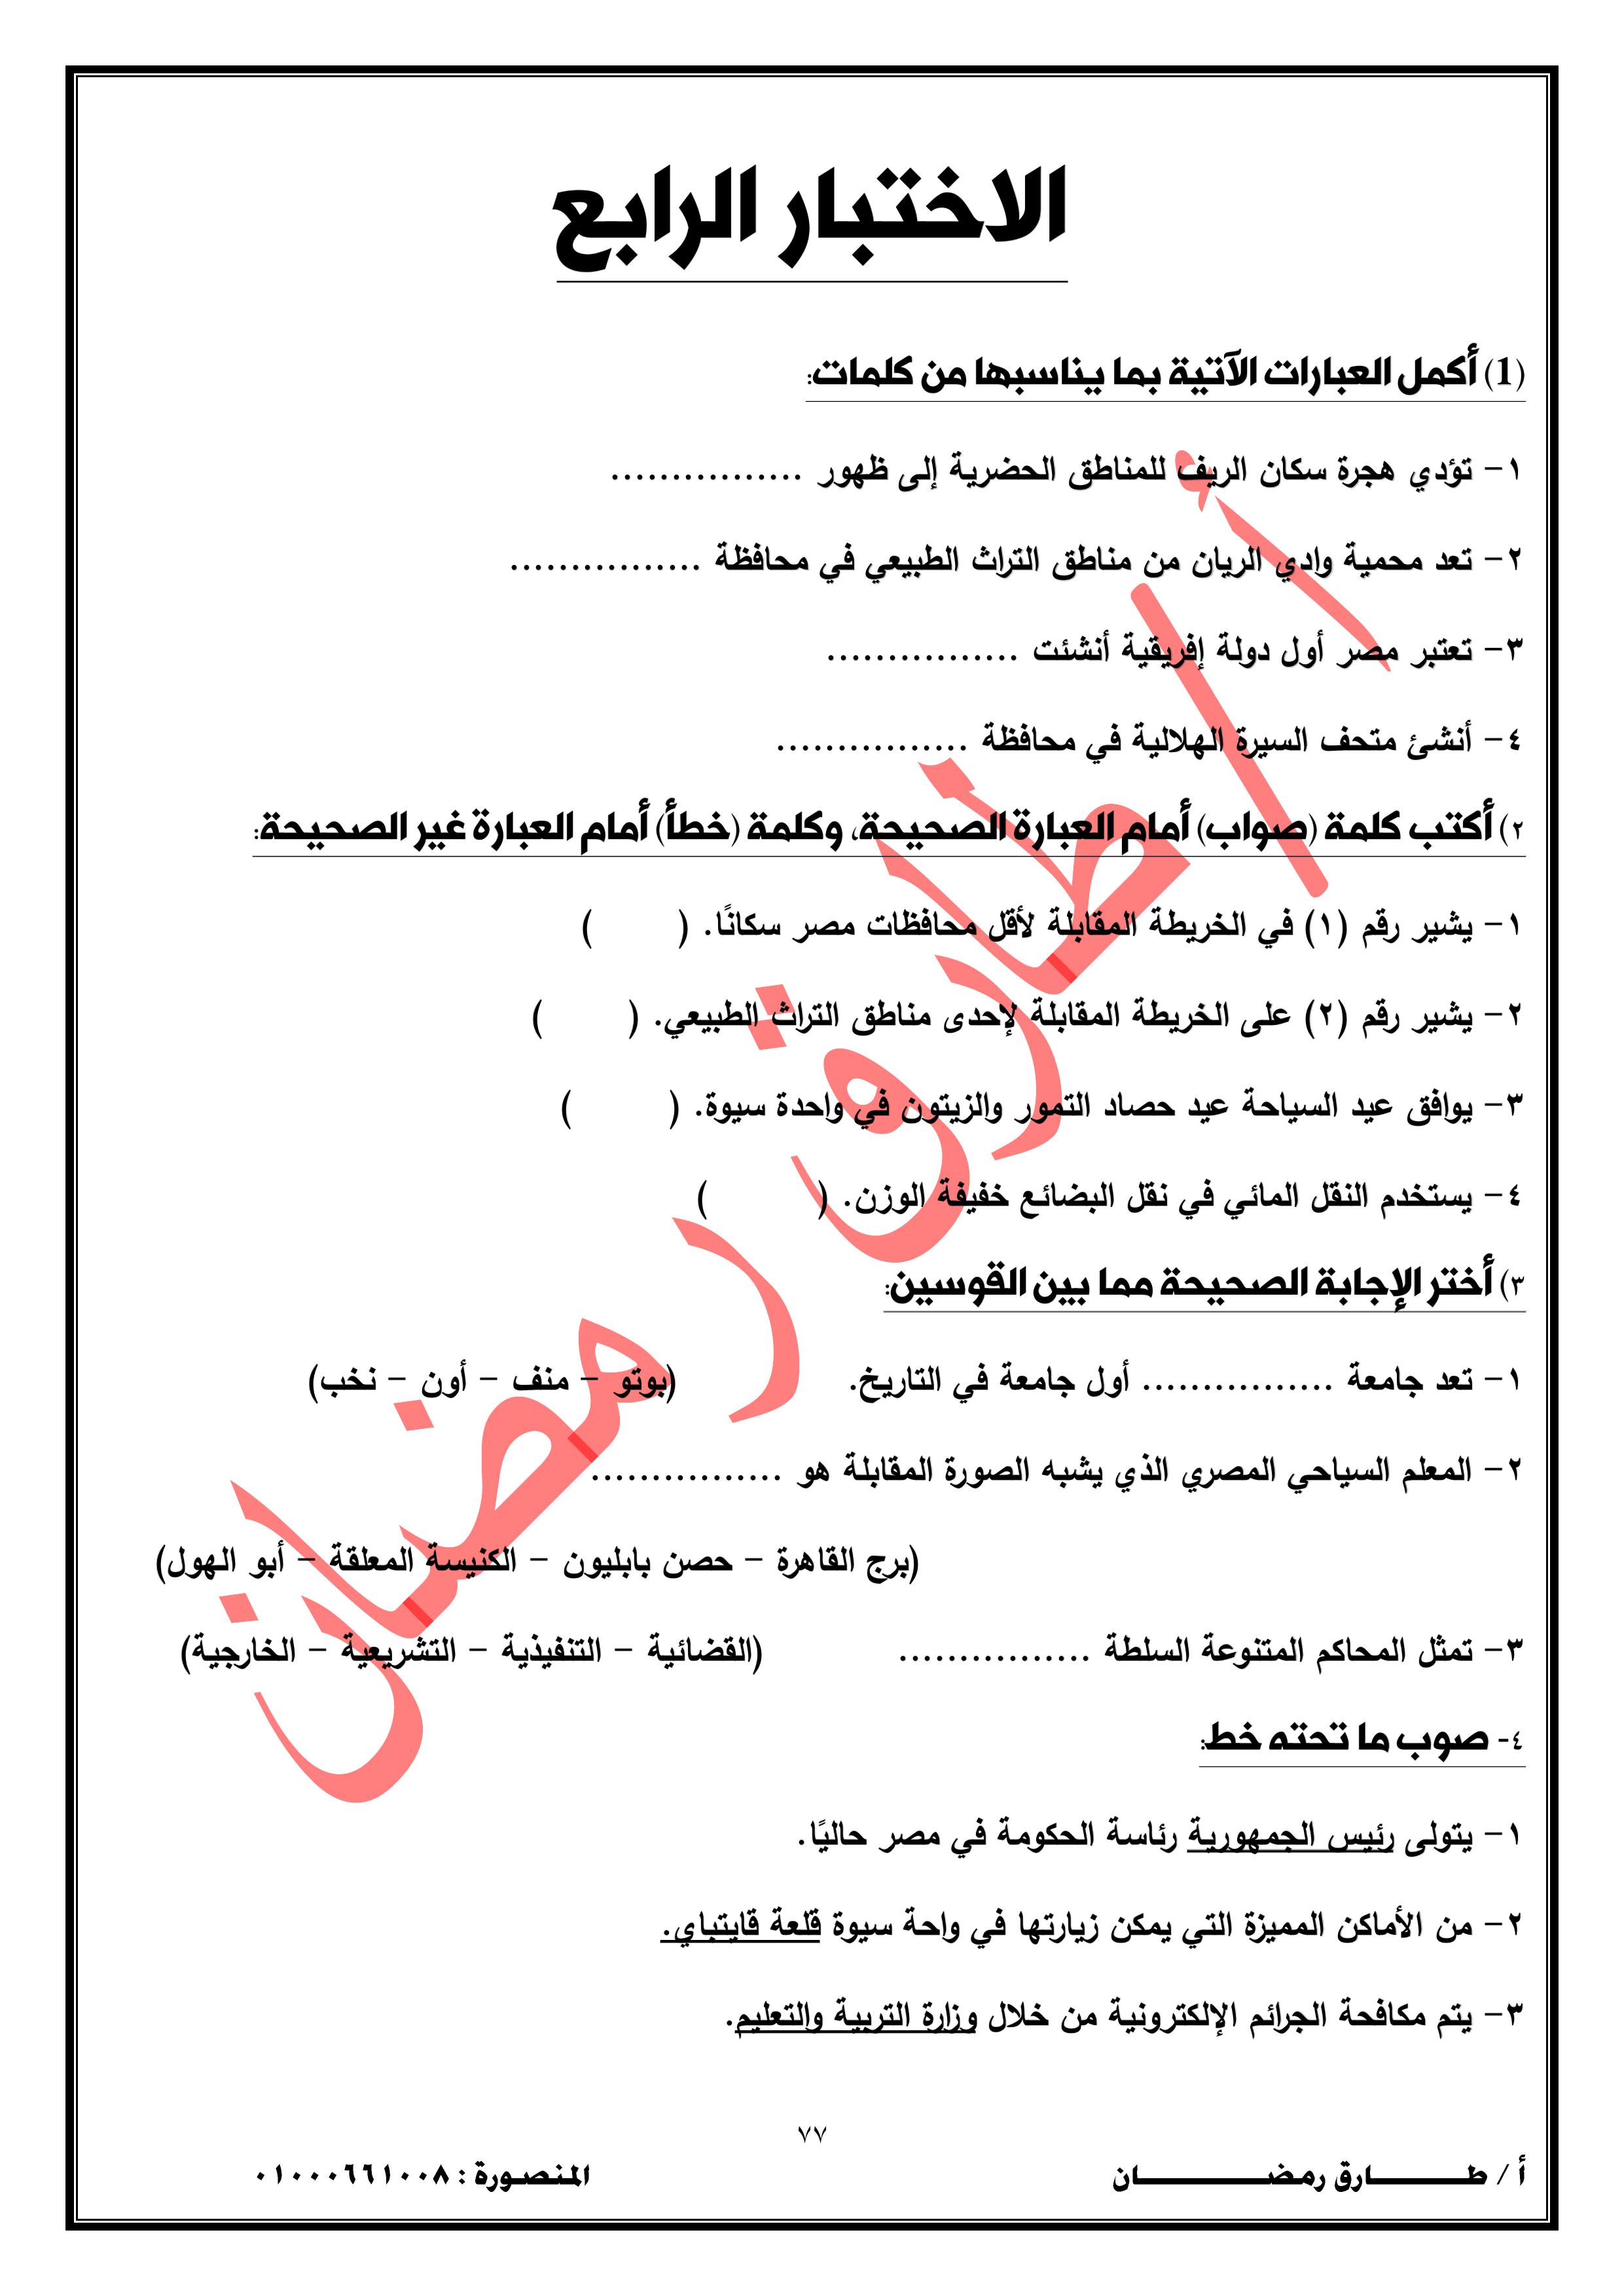 الاختبار الرابع
(1) أكمل العبارات الآتية بما يناسبها من كلمات:
١- تؤدي هجرة سكان الريف للمناطق الحضرية إلى ظهور ................
٢- تعد محمية وادي الريان من مناطق التراث الطبيعي في محافظة ................
٣- تعتبر مصر أول دولة إفريقية أنشئت ................
٤- أنشئ متحف السيرة الهلالية في محافظة ................
٢) أكتب كلمة (صواب) أمام العبارة الصحيحة، وكلمة (خطأ) أمام العبارة غير الصحيحة:
١- يشير رقم (١) في الخريطة المقابلة لأقل محافظات مصر سكانًا. ( )
٢- يشير رقم (٢) على الخريطة المقابلة لإحدى مناطق التراث الطبيعي. ( )
٣- يوافق عيد السياحة عيد حصاد التمور والزيتون في واحدة سيوة. ( )
٤- يستخدم النقل المائي في نقل البضائع خفيفة الوزن. ( )
٣) أختر الإجابة الصحيحة مما بين القوسين:
١- تعد جامعة ................ أول جامعة في التاريخ. (بوتو – منف – أون – نخب)
٢- المعلم السياحي المصري الذي يشبه الصورة المقابلة هو ................
(برج القاهرة – حصن بابليون – الكنيسة المعلقة – أبو الهول)
٣- تمثل المحاكم المتنوعة السلطة ................ (القضائية – التنفيذية – التشريعية – الخارجية)
٤- صوب ما تحته خط:
١- يتولى رئيس الجمهورية رئاسة الحكومة في مصر حاليًا.
٢- من الأماكن المميزة التي يمكن زيارتها في واحة سيوة قلعة قايتباي.
٣- يتم مكافحة الجرائم الإلكترونية من خلال وزارة التربية والتعليم.
أ/ طارق رمضان
٧٧
أ / طـــــــــارق رمضـــــــــــــان المنصورة : ٠١٠٠٠٦٦١٠٠٨